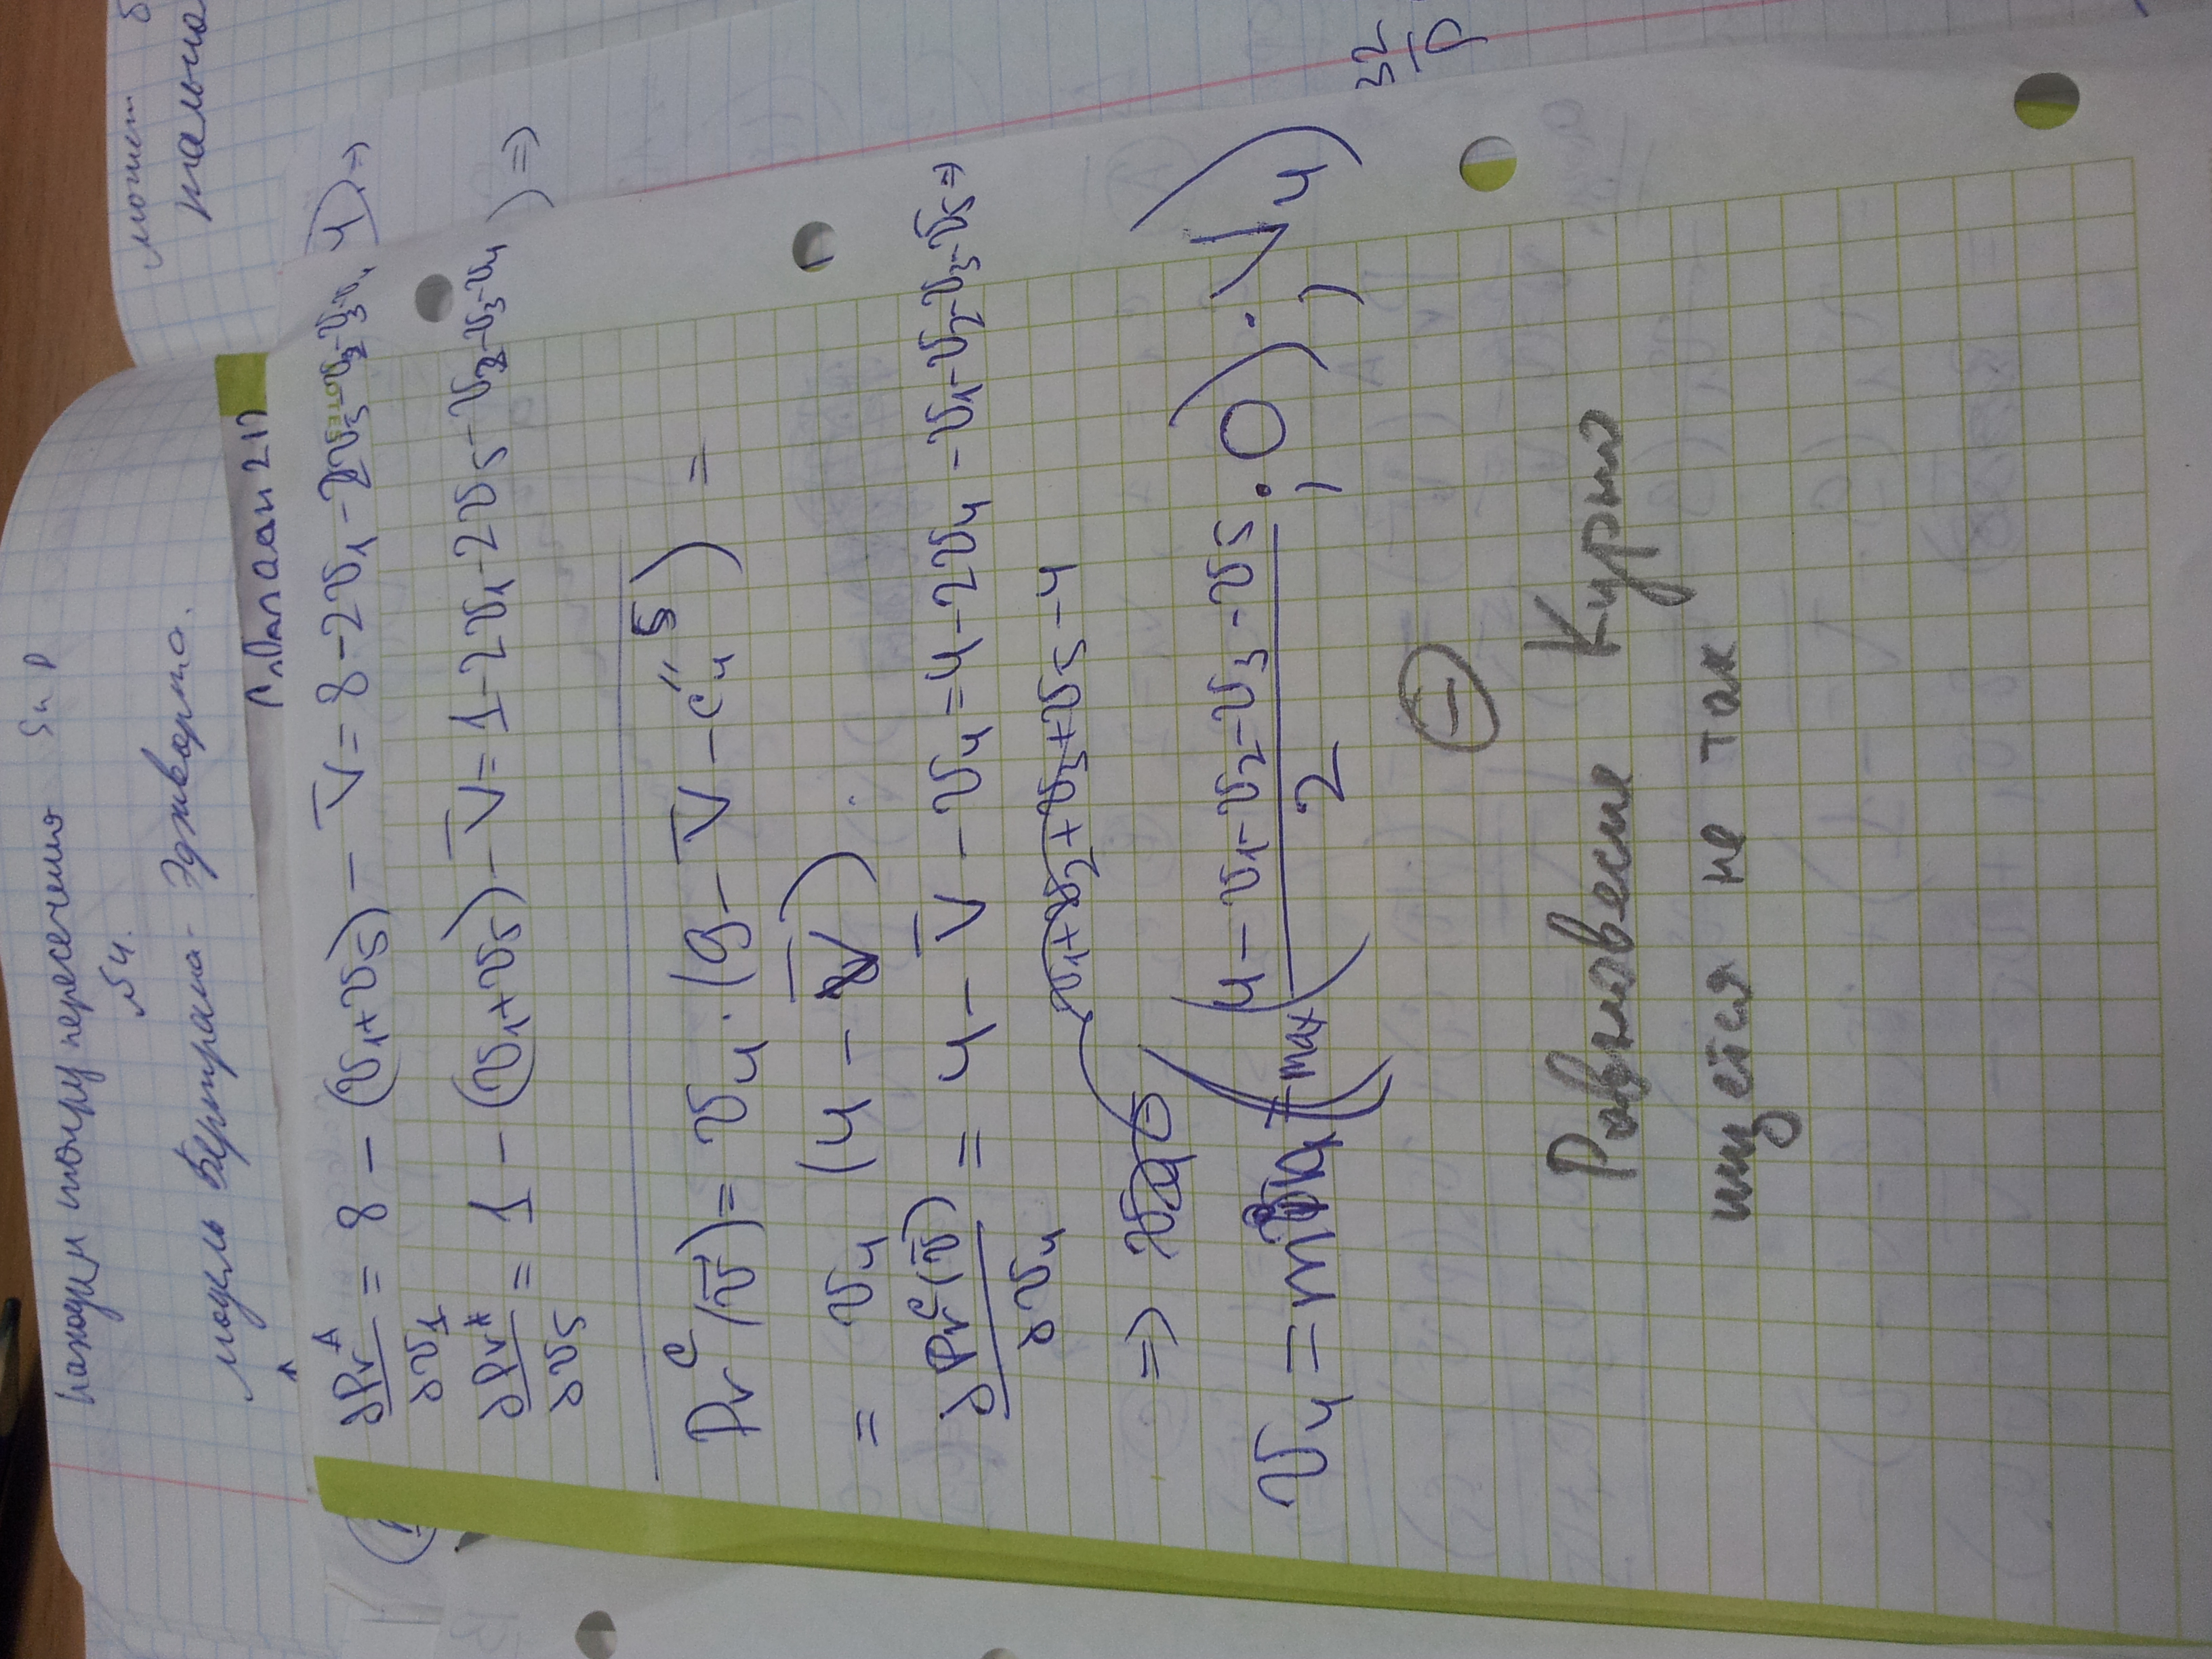 может
находим точку пересечения S и P
№4.
модель Бертрана - Эджворта.
∂Pr^A/∂v_1 = 8 - (v_1+v_5) - V̄ = 8 - 2v_1 - 2v_5 - v_2 - v_3 - v_4 =>
∂Pr^A/∂v_5 = 1 - (v_1+v_5) - V̄ = 1 - 2v_1 - 2v_5 - v_2 - v_3 - v_4) =>
Pr^C(v̄) = v_4 · (9 - V̄ - c''_4 5) =
= v_4 (4 - V̄)
∂Pr^C(v̄)/∂v_4 = 4 - V̄ - v_4 = 4 - 2v_4 - v_1 - v_2 - v_3 - v_5 =>
v_1 + v_2 + v_3 + v_5 - 4
=>
v_4 = min((max(4 - v_1 - v_2 - v_3 - v_5/2; 0); V_4)
(-)
Равновесие Курно
ищется не так
32/p